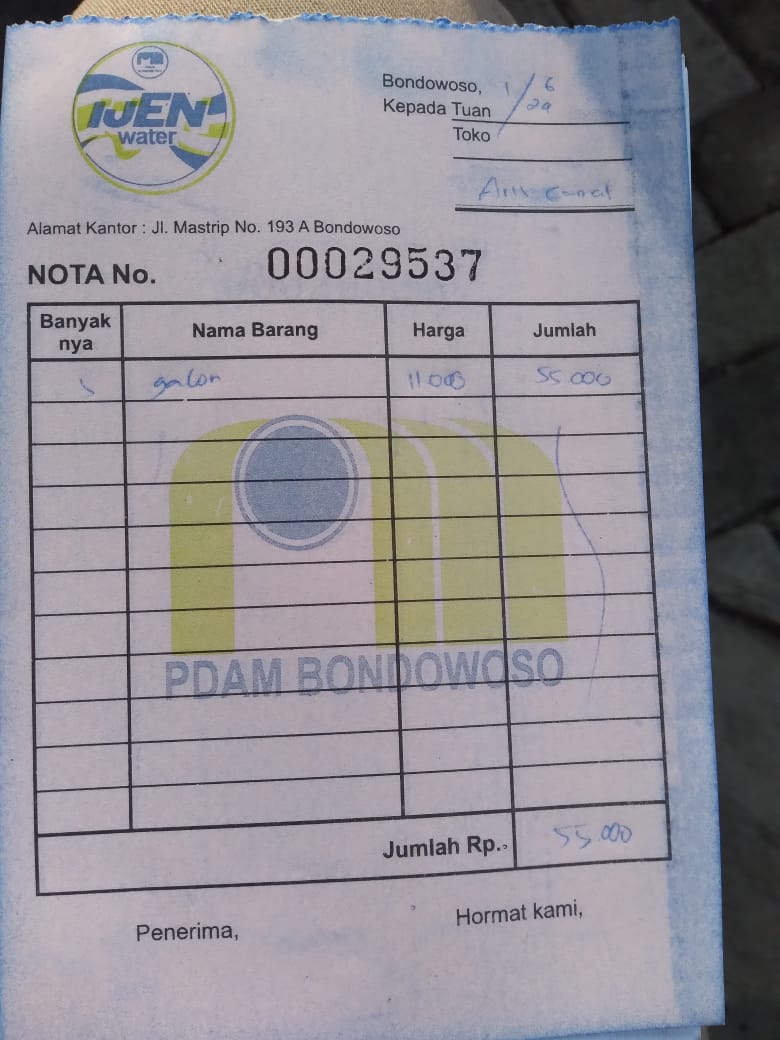 IJEN
water
Bondowoso, 1/6
Kepada Tuan
Toko
Alamat Kantor : Jl. Mastrip No. 193 A Bondowoso
NOTA No. 00029537
Banyak nya Nama Barang Harga Jumlah
5 galon 11.000 55.000
PDAM BONDOWOSO
Jumlah Rp. 55.000
Penerima, Hormat kami,